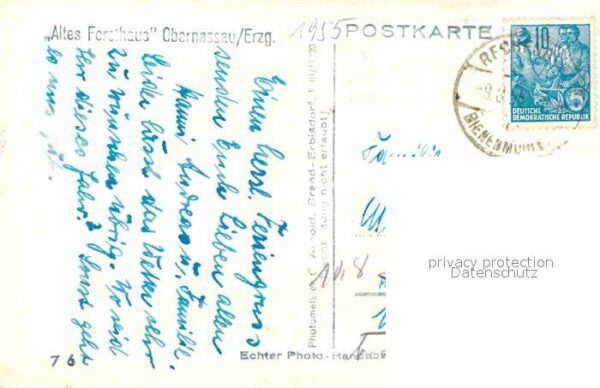 "Altes Forsthaus" Obernassau/Erzg.
1955
POSTKARTE
10
DEUTSCHE
DEMOKRATISCHE REPUBLIK
BIENENMÜHLE
Einen herzl. Feriengruss
senden Euch Lieben allen
Hanni, Andreas u. Familie
Leider lässt das Wetter sehr
zu wünschen übrig. Wo seid
Ihr dieses Jahr? Sonst geht
es uns gut.
Photomeister E. Arnold, Brand-Erbisdorf
nicht erlaubt!
Familie
privacy protection
Datenschutz
76
Echter Photo-Handab